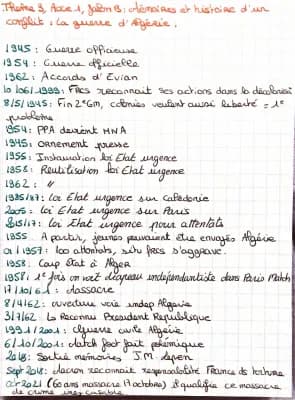 Thème 3, Axe 1, Jalon 3 : Mémoires et histoire d'un
conflit : la guerre d'Algérie.
1945 : Guerre officieuse
1954 : Guerre officielle
1962 : Accords d'Evian
10/06/1999 : Frcs reconnait ses actions dans la décolonisat°
8/5/1945 : Fin 2nd GM, colonies veulent aussi liberté = 1er
problème
1954 : PPA devient MNA
1945 : ornement presse
1955 : Instauration loi Etat urgence
1958 : Réutilisation loi Etat urgence
1962 : "
1985/87 : loi Etat urgence sur Calédonie
2005 : loi Etat urgence sur Paris
2015/17 : loi Etat urgence pour attentats
1955 A partir, jeunes pouvaient être envoyés Algérie
01/1957 : 100 attentats, situ frcs s'aggrave.
1958 : Coup Etat à Alger
1958 : 1e fois on voit drapeau indépendantiste dans Paris Match
17/10/61 : Massacre
8/4/62 : ouverture voie indep Algérie
3/7/62 : la Reconnu Président République
1991/2001 : Guerre civile Algérie
6/10/2001 : match foot fait polémique
2018 : Sortie mémoires J.M. Lepen
Sept 2018 : Macron reconnait responsabilité France de torture
Oct 2021 (60 ans massacre 17 octobre) il qualifie ce massacre
de crime inexcusable